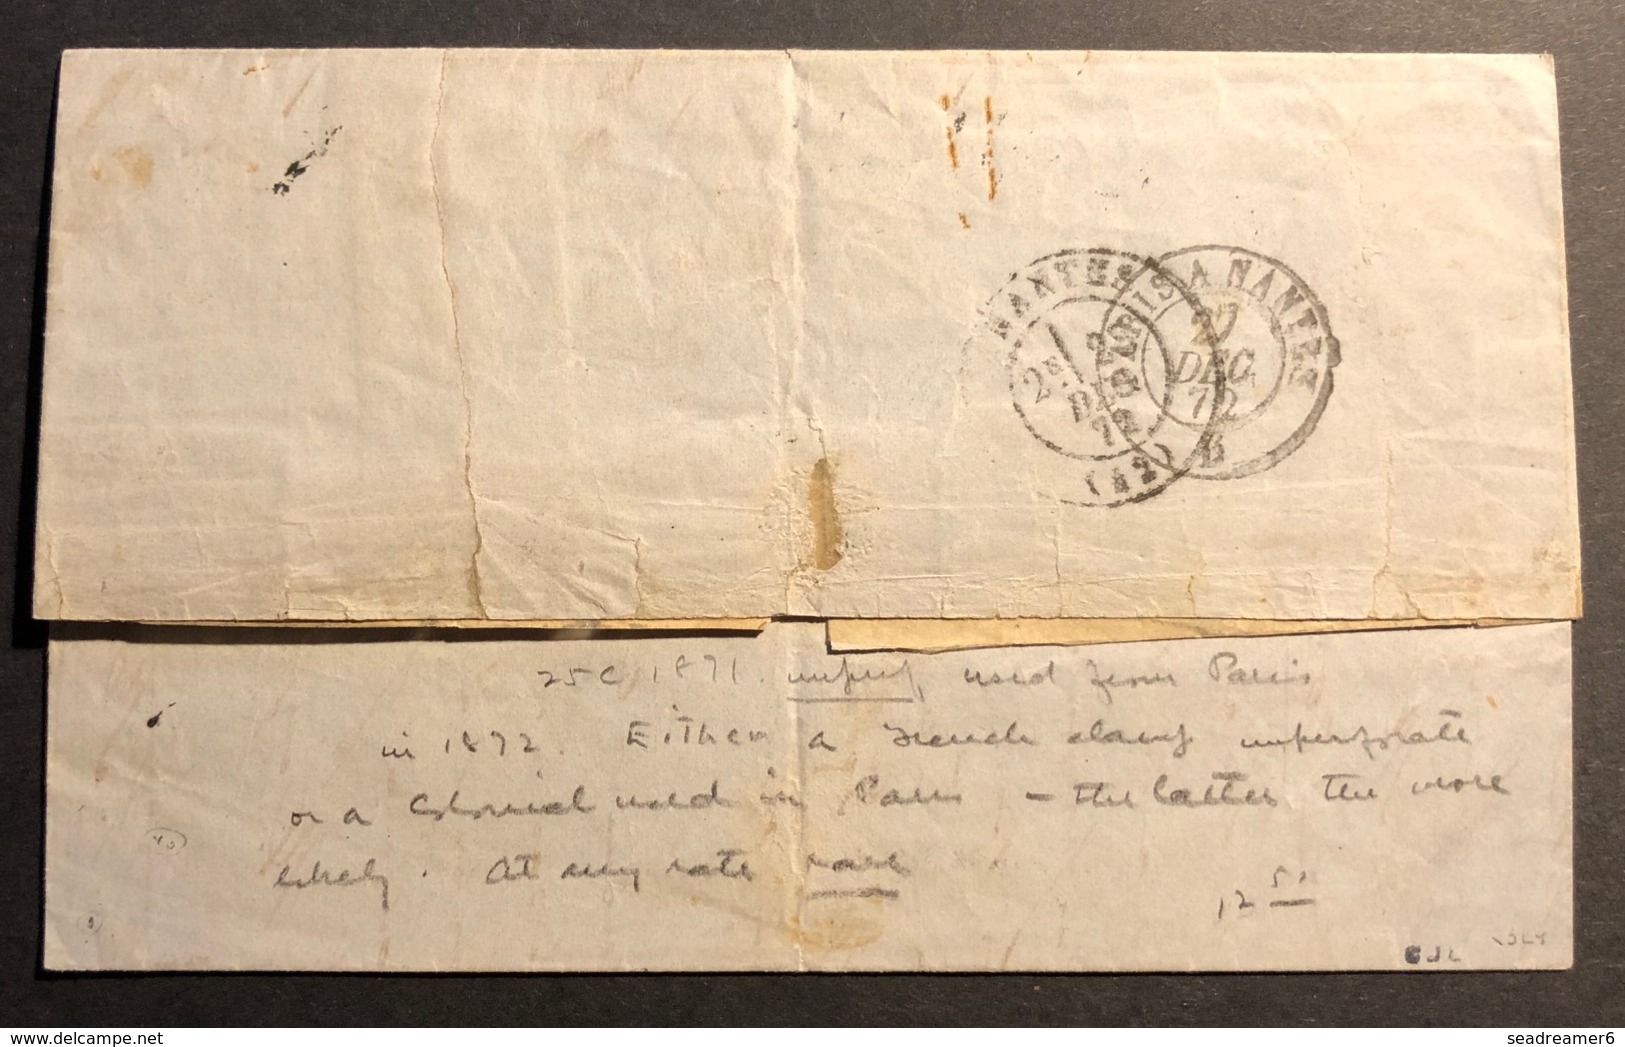 NANTES
2E
DEC
72
(42)
PARIS A NANTES
27
DEC.
72
B
25c 1871. imperf, used from Paris
in 1872. Either a French stamp imperforate
or a Colonial used in Paris – the latter the more
likely. At any rate rare
seadreamer6